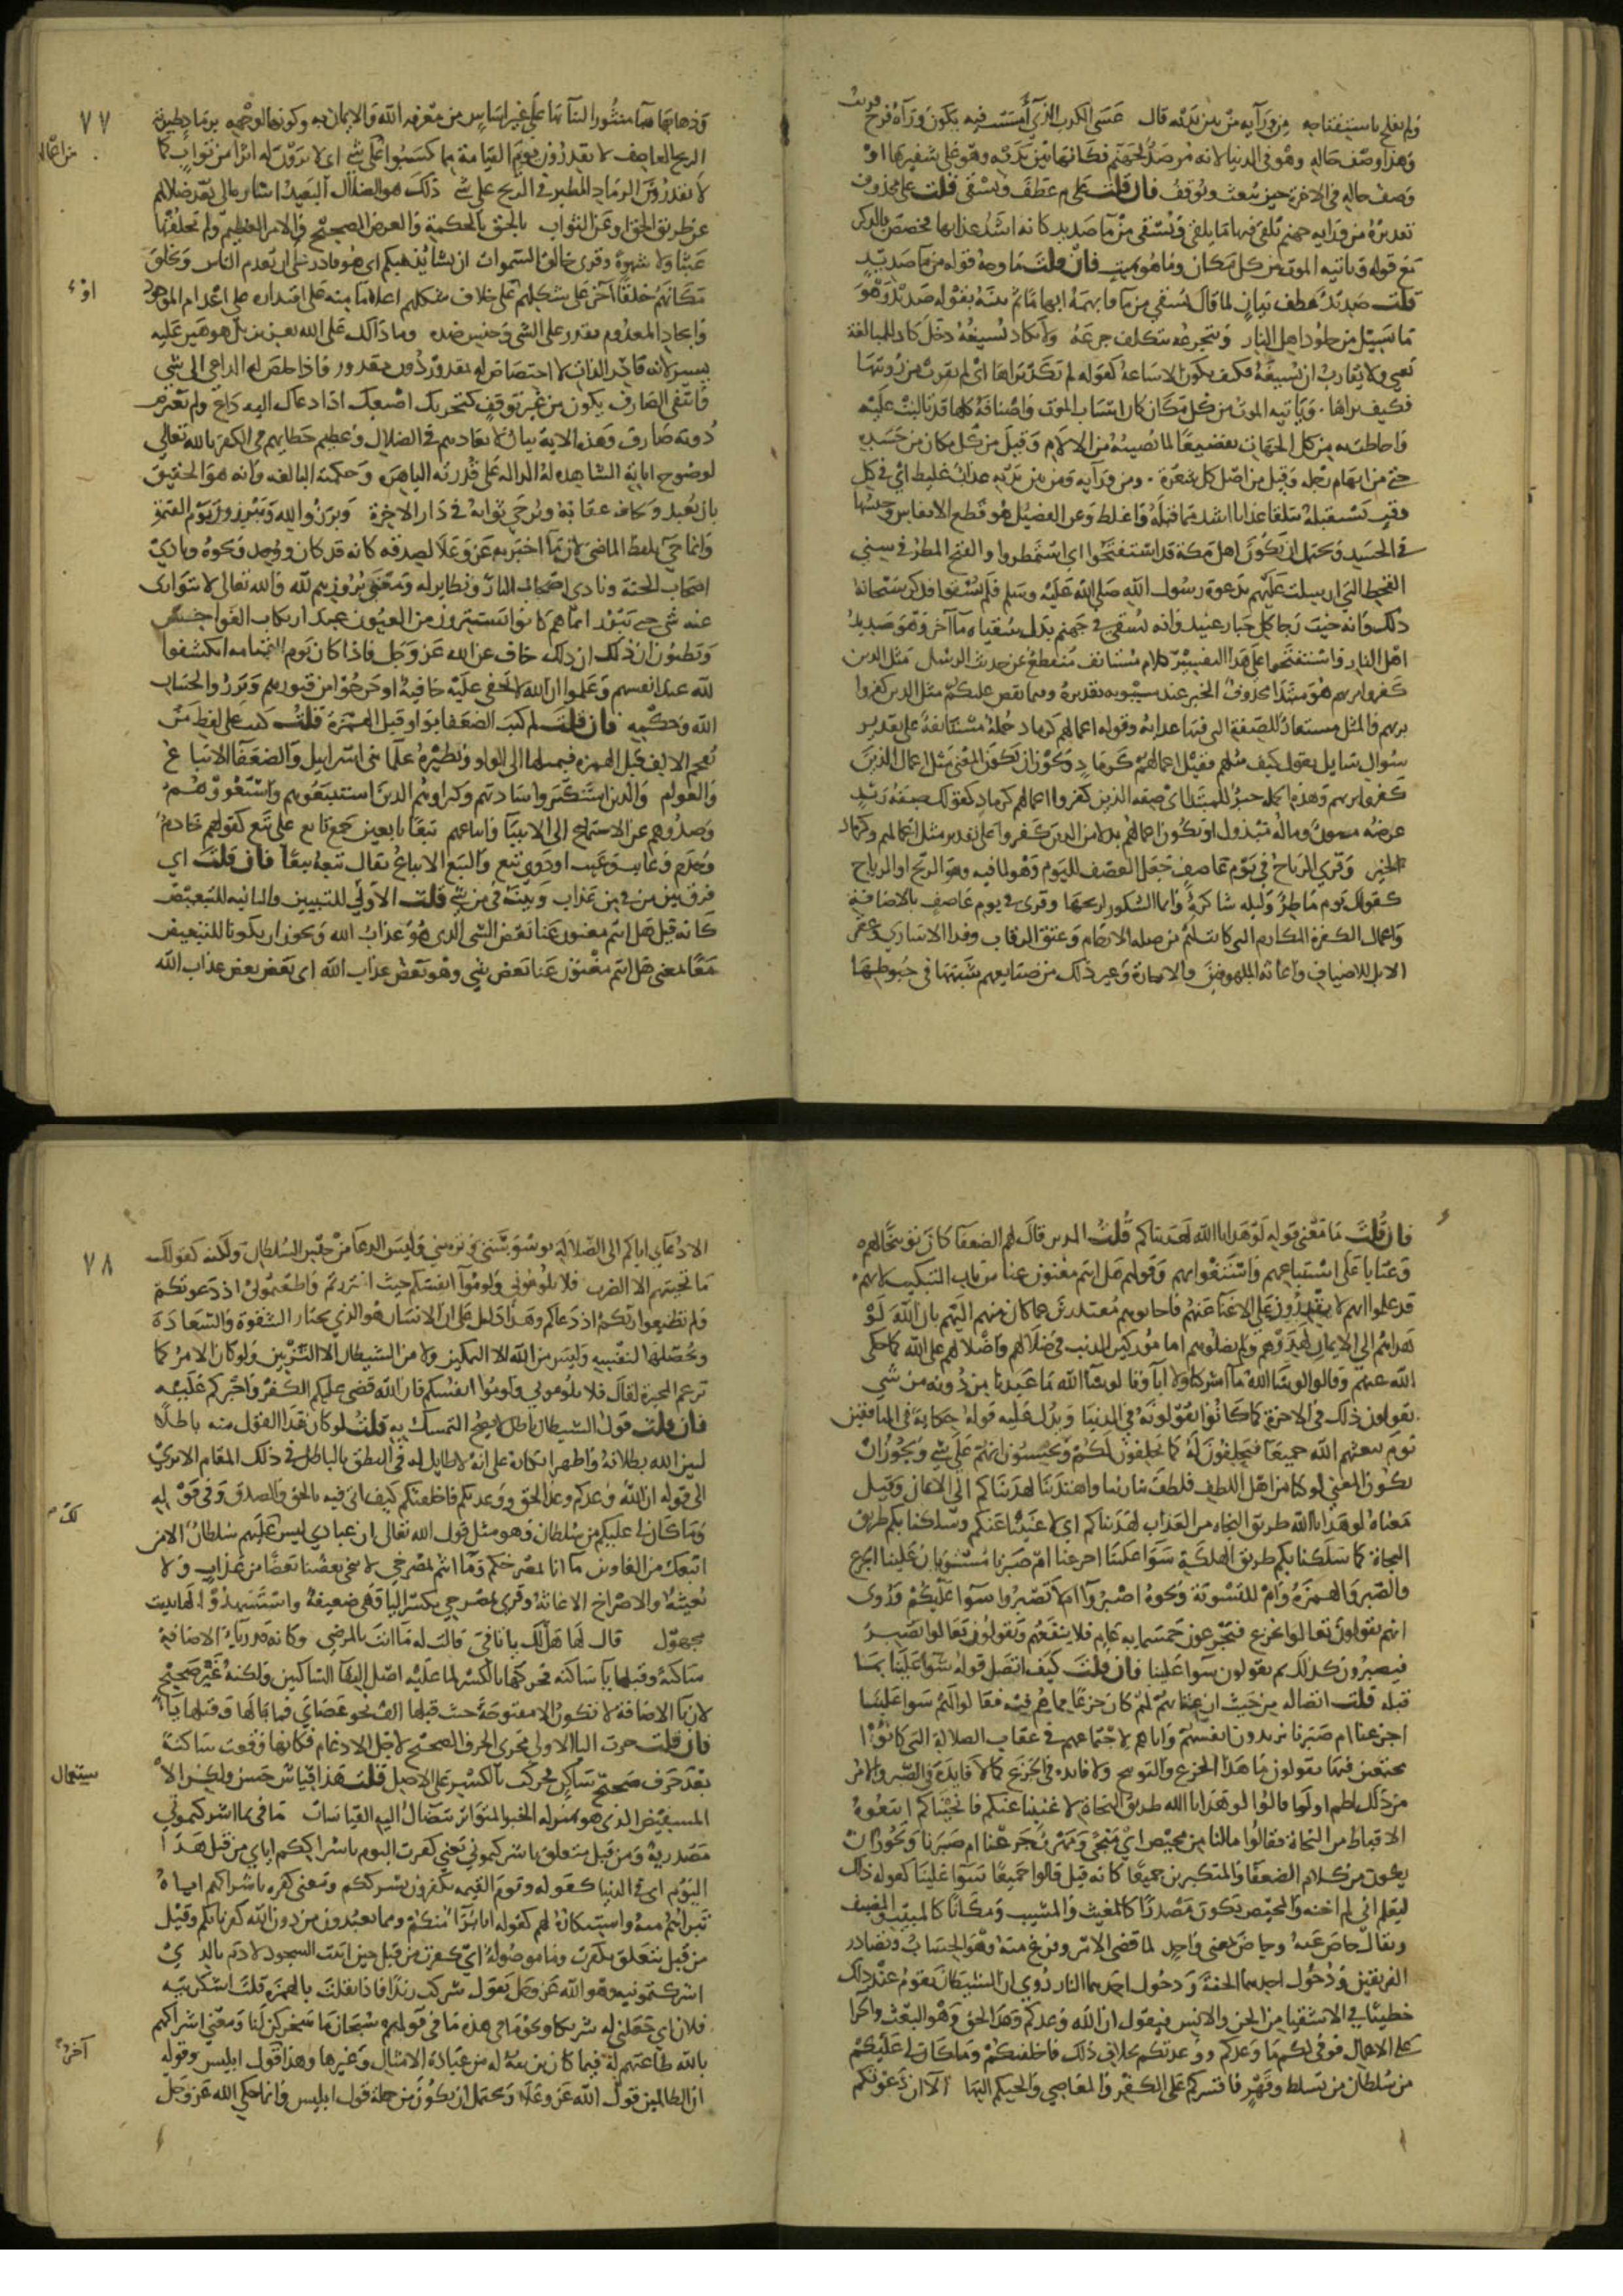 ولم يفلح باستفتاحه من ورآيه من بين يديه قال عسى الكرب الذي أمسيت فيه يكون ورآه فرج قريب
وهذا وصف حاله وهو في الدنيا لانه مرصد لجهنم فكانها بين يديه وهو على شفيرها او
وصف حاله في الاخرة حين يبعث ويوقف فان قلت علام عطف ويسقى قلت على محذوف
تقديره من ورايه جهنم يلقى فيها ما يلقى ويسقى من مآ صديد كانه اشد عذابها فخصص بالذكر
مع قوله وياتيه الموت من كل مكان وما هو بميت فان قلت ما وجه قوله من مآ صديد
قلت صديد عطف بيان لما قال ويسقى من مآ فابهمه ابهاما ثم بينه بقوله صديد وهو
ما يسيل من جلود اهل النار ويتجرعه يتكلف جرعه ولا يكاد يسيغه دخل كاد للمبالغة
يعني ولا يقارب ان يسيغه فكيف يكون الاساغة كقوله لم يكد يراها اي لم يقرب من رويتها
فكيف يراها وياتيه الموت من كل مكان كان اسباب الموت واصنافه كلها قد تالبت عليه
واحاطت به من كل الجهات تفظيعا لما يصيبه من الالام وقيل من كل مكان من جسده
حتى من ابهام رجله وقيل من اصل كل شعرة ومن ورآيه ومن بين يديه عذاب غليظ اي في كل
وقت يستقبله يتلقى عذابا اشد مما قبله واغلظ وعن الفضيل هو قطع الانفاس وحبسها
في الجسد ويحتمل ان يكون اهل مكة قد استفتحوا اي استمطروا والفتح المطر في سني
القحط التي ارسلت عليهم بدعوة رسول الله صلى الله عليه وسلم فلم يسقوا فذكر سبحانه
ذلك وانه خيب رجا كل جبار عنيد وانه يسقى في جهنم بدل سقياه مآ آخر وهو صديد
اهل النار واستفتحوا على هذا التفسير كلام مستانف منقطع عن حديث الرسل مثل الذين
كفروا بربهم هو مبتدا محذوف الخبر عند سيبويه تقديره وفيما نقص عليكم مثل الذين كفروا
بربهم والمثل مستعار للصفة التي فيها غرابة وقوله اعمالهم كرماد جملة مستانفة على تقدير
سوال سايل يقول كيف مثلهم فقيل اعمالهم كرماد ويجوز ان يكون المعنى مثل اعمال الذين
كفروا بربهم وهذه الجملة خبر للمبتدا اي صفة الذين كفروا اعمالهم كرماد كقولك صفة زيد
عرضه مصون وماله مبذول او تكون اعمالهم بدلا من الذين كفروا على تقدير مثل اعمالهم وكرماد
الخبر وقري الرياح في يوم عاصف جعل العصف لليوم وهو لما فيه وهو الريح او الرياح
كقولك يوم ماطر وليلة ساكرة وانما السكور لريحها وقري في يوم عاصف بالاضافة
واعمال الكفرة المكارم التي كانت لهم من صلة الارحام وعتق الرقاب وفدا الاسارى وعقر
الابل للاضياف واغاثة الملهوفين والاجارة وغير ذلك من صنايعهم شبهها في حبوطها
٧٧
وذهابها هبآ منثورا لبنآيها على غير اساس من معرفة الله والايمان به وكونها لوجهه برماد طيرته
الريح العاصف لا يقدرون يوم القيامة مما كسبوا على شي اي لا يرون له اثرا من ثواب كما
من اعماله
لا يقدرون من الرماد المطير في الريح على شي ذلك هو الضلال البعيد اشارة الى بعد ضلالهم
عن طريق الحق او عن الثواب بالحق بالحكمة والغرض الصحيح والامر العظيم ولم يخلقها
عبثا ولا شهوة وقري خالق السموات ان يشا يذهبكم اي هو قادر على ان يعدم الناس ويخلق
مكانهم خلقا آخر على شكلهم على خلاف شكلهم اعلاما منه على اقتداره على اعدام الموجود
اوء
وايجاد المعدوم يقدر على الشي وجنس ضده وما ذلك على الله بعزيز بل هو هين عليه
يسير لانه قادر الذات لا اختصاص له بمقدور دون مقدور فاذا خلص له الداعي الى شي
وانتفى الصارف يكون من غير توقف كتحريك اصبعك اذا دعاك اليه داع ولم يعترض
دونه صارف وهذه الاية بيان لابعادهم في الضلال وعظيم خطابهم في الكفر بالله تعالى
لوضوح اياته الشاهدة له الدالة على قدرته الباهرة وحكمته البالغة وانه هو الحقيق
بان يعبد ويخاف عقابه ويرجى ثوابه في دار الاخرة وبرزوا لله ويبرزون يوم القيمة
وانما جي بلفظ الماضي لان ما اخبر به عز وعلا لصدقه كانه قد كان ووجد ونحوه ونادى
اصحاب الجنة ونادى اصحاب النار ونظاير له ومعنى بروزهم لله والله تعالى لا يتوارى
عنه شي حتى يبرز انهم كانوا يستترون من العيون عند ارتكاب الفواحش
ويظنون ان ذلك خاف عن الله عز وجل فاذا كان يوم القيامة انكشفوا
لله عند انفسهم وعلموا ان الله لا يخفى عليه خافية او خرجوا من قبورهم وبرزوا لحساب
الله وحكمه فان قلت لم كتب الضعفا بواو قبل الهمزة قلت كتب على لفظ من
يفخم الالف قبل الهمزة فيميلها الى الواو ونظيره علما بني اسرايل والضعفآ الاتباع
والعوام والذين استكبروا سادتهم وكبراوهم الذين استتبعوهم واستغووهم
وصدوهم عن الاستماع الى الانبيا واتباعهم تبعا تابعين جمع تابع على تبع كقولهم خادم
وخدم وغايب وغيب او ذوي تبع والتبع الاتباع يقال تبعه تبعا فان قلت اي
فرق بين من في من عذاب وبينه في من شي قلت الاولى للتبيين والثانية للتبعيض
كانه قيل هل انتم مغنون عنا بعض الشي الذي هو عذاب الله ويجوز ان يكونا للتبعيض
معا لمعنى هل انتم مغنون عنا بعض شي وهو بعض عذاب الله اي بعض بعض عذاب الله
فان قلت ما معنى قوله لو هدانا الله لهديناكم قلت الذين قال لهم الضعفا كان توبيخا لهم
وعتابا على استتباعهم واستغوايهم وقولهم هل انتم مغنون عنا من باب التبكيت لانهم
قد علموا انهم لا يقدرون على الاغنا عنهم فاجابوهم معتذرين عما كان منهم اليهم بان الله لو
هداهم الى الايمان لهدوهم ولم يضلوهم اما موركين الذنب في ضلالهم واضلالهم على الله كما حكى
الله عنهم وقالوا لو شا الله ما اشركنا ولا آباونا لو شآ الله ما عبدنا من دونه من شي
يقولون ذلك في الاخرة كما كانوا يقولونه في الدنيا ويدل عليه قوله حكاية في المنافقين
يوم يبعثهم الله جميعا فيحلفون له كما يحلفون لكم ويحسبون انهم على شي ويجوز ان
يكون المعنى لو كنا من اهل اللطف فلطف بنا ربنا واهتدينا لهديناكم الى الايمان وقيل
معناه لو هدانا الله طريق النجاة من العذاب لهديناكم اي لاغنينا عنكم وسلكنا بكم طريق
النجاة كما سلكنا بكم طريق الهلكة سوا علينا اجزعنا ام صبرنا مستويان علينا الجزع
والصبر والهمزة وام للتسوية ونحوه اصبروا او لا تصبروا سوآ عليكم وروى
انهم يقولون تعالوا نجزع فيجزعون خمسماية عام فلا ينفعهم ويقولون تعالوا نصبر
فيصبرون كذلك ثم يقولون سوآ علينا فان قلت كيف اتصل قوله سوآ علينا بما
قبله قلت اتصاله من حيث ان عتابهم لهم كان جزعا مما هم فيه فقالوا لهم سوا علينا
اجزعنا ام صبرنا يريدون انفسهم واياهم لاجتماعهم في عقاب الضلالة التي كانوا
مجتمعين فيها يقولون ما هذا الجزع والتوبيخ ولا فايدة في الجزع كما لا فايدة في الصبر والامر
من ذلك اطم او لما قالوا لو هدانا الله طريق النجاة لاغنينا عنكم فانجيناكم اتبعوه
الاقناط من النجاة فقالوا ما لنا من محيص اي منجى ومهرب اجزعنا ام صبرنا ويجوز ان
يكون من كلام الضعفا والمتكبرين جميعا كانه قيل قالوا جميعا سوآ علينا كقوله ذلك
ليعلم اني لم اخنه والمحيص يكون مصدرا كالمغيب والمشيب ومكانا كالمبيت والمصيف
ويقال حاص عنه وجاض بمعنى واحد لما قضي الامر وفرغ منه وهو الحساب وتصادر
الفريقين ودخول احدهما الجنة ودخول احدهما النار روي ان الشيطان يقوم عند ذلك
خطيبا في الاشقيا من الجن والانس فيقول ان الله وعدكم وعد الحق وهو البعث والجزا
على الاعمال فوفى لكم ما وعدكم ووعدتكم بخلاف ذلك فاخلفتكم وما كان لي عليكم
من سلطان من تسلط وقهر فاقسركم على الكفر والمعاصي والجيكم اليها الآ ان دعوتكم
٧٨
الا دعاي اياكم الى الضلالة بوسوستي وتزييني وليس الدعآ من جنس السلطان ولكنه كقولك
ما تحيتهم الا الضرب فلا تلوموني ولوموآ انفسكم حيث اغتررتم واطعتموني اذ دعوتكم
ولم تطيعوا ربكم اذ دعاكم وهذا دليل على ان الانسان هو الذي يختار الشقوة والسعادة
ويحصلها لنفسه وليس من الله الا التمكين ولا من الشيطان الا التزيين ولو كان الامر كما
تزعم المجبرة لقال فلا تلوموني ولا لوموا انفسكم فان الله قضى عليكم الكفر واجبركم عليه
فان قلت قول الشيطان باطل لا يصح التمسك به قلت لو كان هذا القول منه باطلا
لبين الله بطلانه واظهر انكاره على انه لا طايل له في النطق بالباطل في ذلك المقام الا ترى
الى قوله ان الله وعدكم وعد الحق ووعدتكم فاخلفتكم كيف اتى فيه بالحق والصدق وفي قوله
لك
وما كان لي عليكم من سلطان وهو مثل قول الله تعالى ان عبادي ليس لك عليهم سلطان الا من
اتبعك من الغاوين ما انا بمصرخكم وما انتم بمصرخي لا ينجي بعضنا بعضا من عذاب ولا
يغيثه والاصراخ الاغاثة وقري بمصرخي بكسر اليا وهي ضعيفة واستشهدوا لها ببيت
مجهول قال لها هل لك يا تا في قالت له ما انت بالمرضي وكانه قدر يآ الاضافة
ساكنة وقبلها يآ ساكنة فحركها بالكسر لما عليه اصل التقآ الساكنين ولكنه غير صحيح
لان يآ الاضافة لا تكون الا مفتوحة حيث قبلها الف نحو عصاي فما بالها وقبلها يآ
فان قلت جرت اليا الاولى مجرى الحرف الصحيح لاجل الادغام فكانها وقعت ساكنة
بعد حرف صحيح ساكن فحركت بالكسر على الاصل قلت هذا قياس حسن ولكن الا
ستعمال
المستفيض الذي هو بمنزلة الخبر المتواتر يتضآل اليه القياسات ما في بما اشركتموني
مصدرية ومن قبل متعلق باشركتموني يعني كفرت اليوم باشراككم اياي من قبل هذا
اليوم اي في الدنيا كقوله ويوم القيمة يكفرون بشرككم ومعنى كفره باشراكهم اياه
تبراهم منه واستنكاره لهم كقوله انا برآ منكم ومما تعبدون من دون الله كفرنا بكم وقيل
من قبل يتعلق بكفرت وما موصولة اي كفرت من قبل حين ابيت السجود لادم بالذي
اشركتمونيه وهو الله عز وجل يقول شركت زيدا فاذا نقلت بالهمزة قلت اشركنيه
فلان اي جعلني له شريكا ونحو ما هذه ما في قولهم سبحان ما سخركن لنا ومعنى اشراكهم
بالله طاعتهم له فيما كان يزينه له من عبادة الاوثان وغيرها وهذا قول ابليس وقوله
آخر
ان الظالمين قول الله عز وعلا ويحتمل ان يكون من جملة قول ابليس وانما حكى الله عز وجل